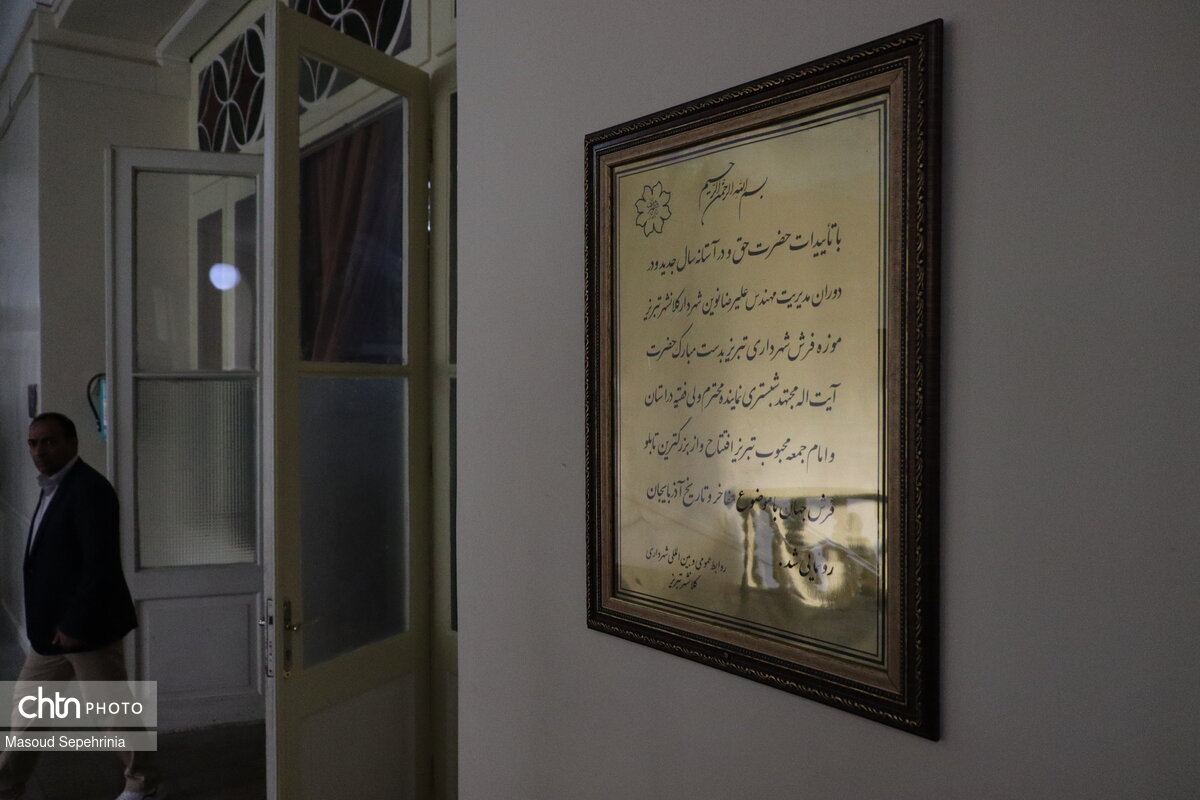 بسم الله الرحمن الرحیم
با تأییدات حضرت حق و در آستانه سال جدید و در
دوران مدیریت مهندس علیرضا نوین شهردار کلانشهر تبریز
موزه فرش شهرداری تبریز بدست مبارک حضرت
آیت اله مجتهد شبستری نماینده محترم ولی فقیه در استان
و امام جمعه محبوب تبریز افتتاح و از بزرگترین تابلو
فرش جهان با موضوع مفاخر و تاریخ آذربایجان
رونمائی شد.
روابط عمومی و بین المللی شهرداری
کلانشهر تبریز
chtn PHOTO
Masoud Sepehrinia